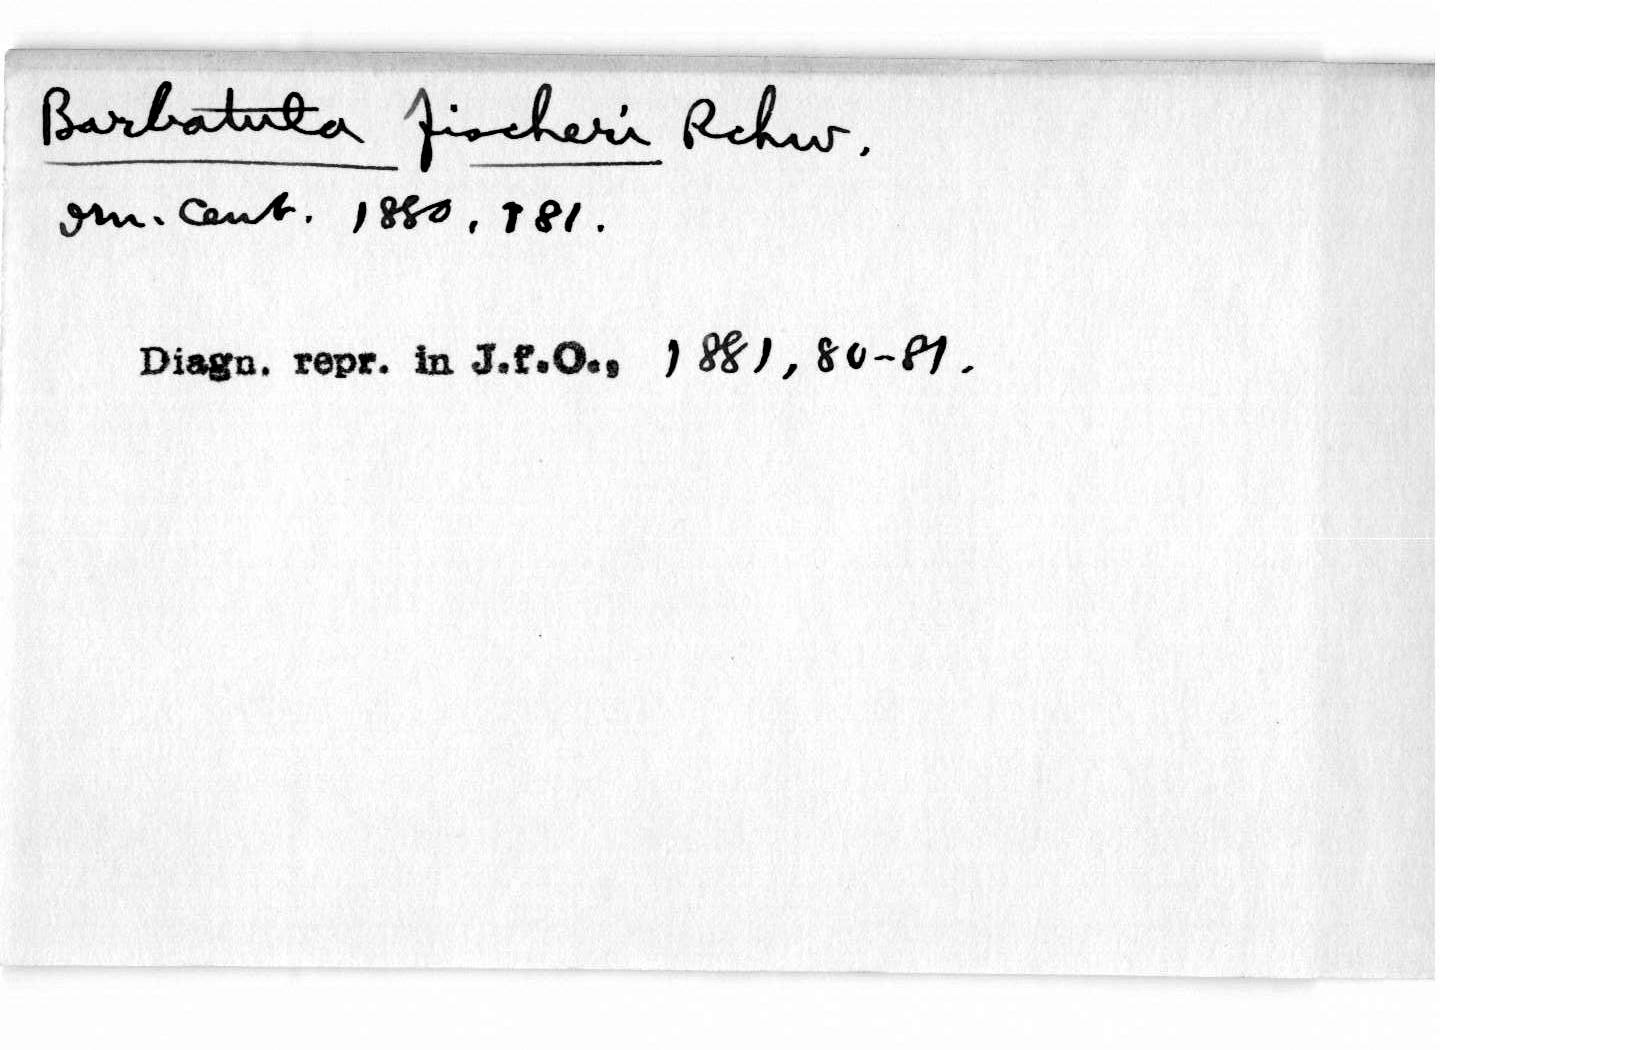 Barbatula fischeri Rchw.
Orn. Cent. 1880, 181.
Diagn. repr. in J.f.O., 1881, 80-81.